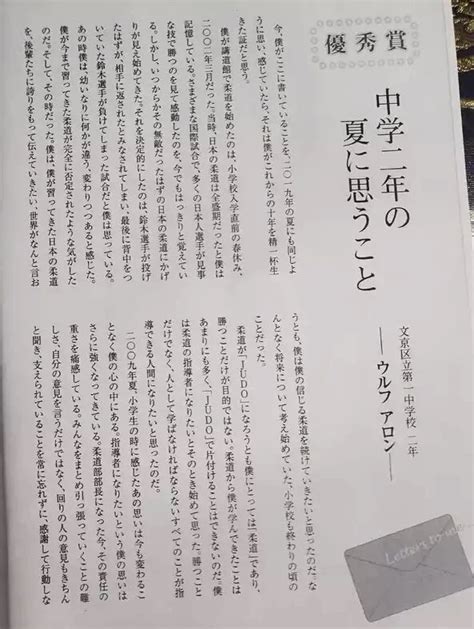 優秀賞
中学二年の
夏に思うこと
文京区立第一中学校 二年
──ウルフ アロン──
今、僕がここに書いていることを、二〇一九年の夏にも同じよ
うに思い、感じていたら、それは僕がこれからの十年を精一杯生
きた証だと思う。
僕が講道館で柔道を始めたのは、小学校入学直前の春休み、
二〇〇二年三月だった。当時、日本の柔道は全盛期だったと僕は
記憶している。さまざまな国際試合で、多くの日本人選手が見事
な技で勝つのを見て感動したのを、今でもはっきりと覚えてい
る。しかし、いつからかその無敵だったはずの日本の柔道にかげ
りが見え始めてきた。それを決定的にしたのは、鈴木選手が投げ
たはずが、相手に返されたとみなされてしまい、最後に背中をつ
いていた鈴木選手が負けてしまった試合だと僕は思っている。
あの時僕は、幼いなりに何かが違う、変わりつつあると感じた。
僕が今まで習ってきた柔道が完全に否定されたような気がした
のだ。そして、その時だった。僕は、僕が習ってきた日本の柔道
を、後輩たちに誇りをもって伝えていきたい、世界がなんと言お
うとも、僕は僕の信じる柔道を続けていきたいと思ったのだ。な
んとなく将来について考え始めていた、小学校も終わりの頃の
ことだった。
柔道が「JUDO」になろうとも僕にとっては「柔道」であり、
勝つことだけが目的ではない。柔道から僕が学んできたことは
あまりにも多く、「JUDO」で片付けることはできないのだ。僕
は柔道の指導者になりたいとそのとき始めて思った。勝つこと
だけでなく、人として学ばなければならないすべてのことが指
導できる人間になりたいと思ったのだ。
二〇〇九年夏、小学生の時に感じたあの思いは今も変わるこ
となく僕の心の中にある。指導者になりたいという僕の思いは
さらに強くなってきている。柔道部部長になった今、その責任の
重さを痛感している。みんなをまとめ引っ張っていくことの難
しさ、自分の意見を言うだけではなく、回りの人の意見もきちん
と聞き、支えられていることを常に忘れずに、感謝して行動しな